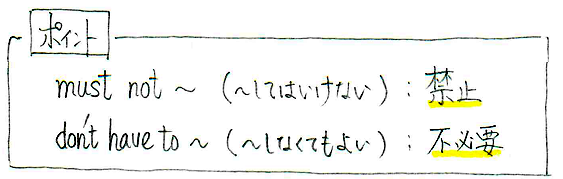 ポイント
must not ~ (~してはいけない) : 禁止
don't have to ~ (~しなくてもよい) : 不必要